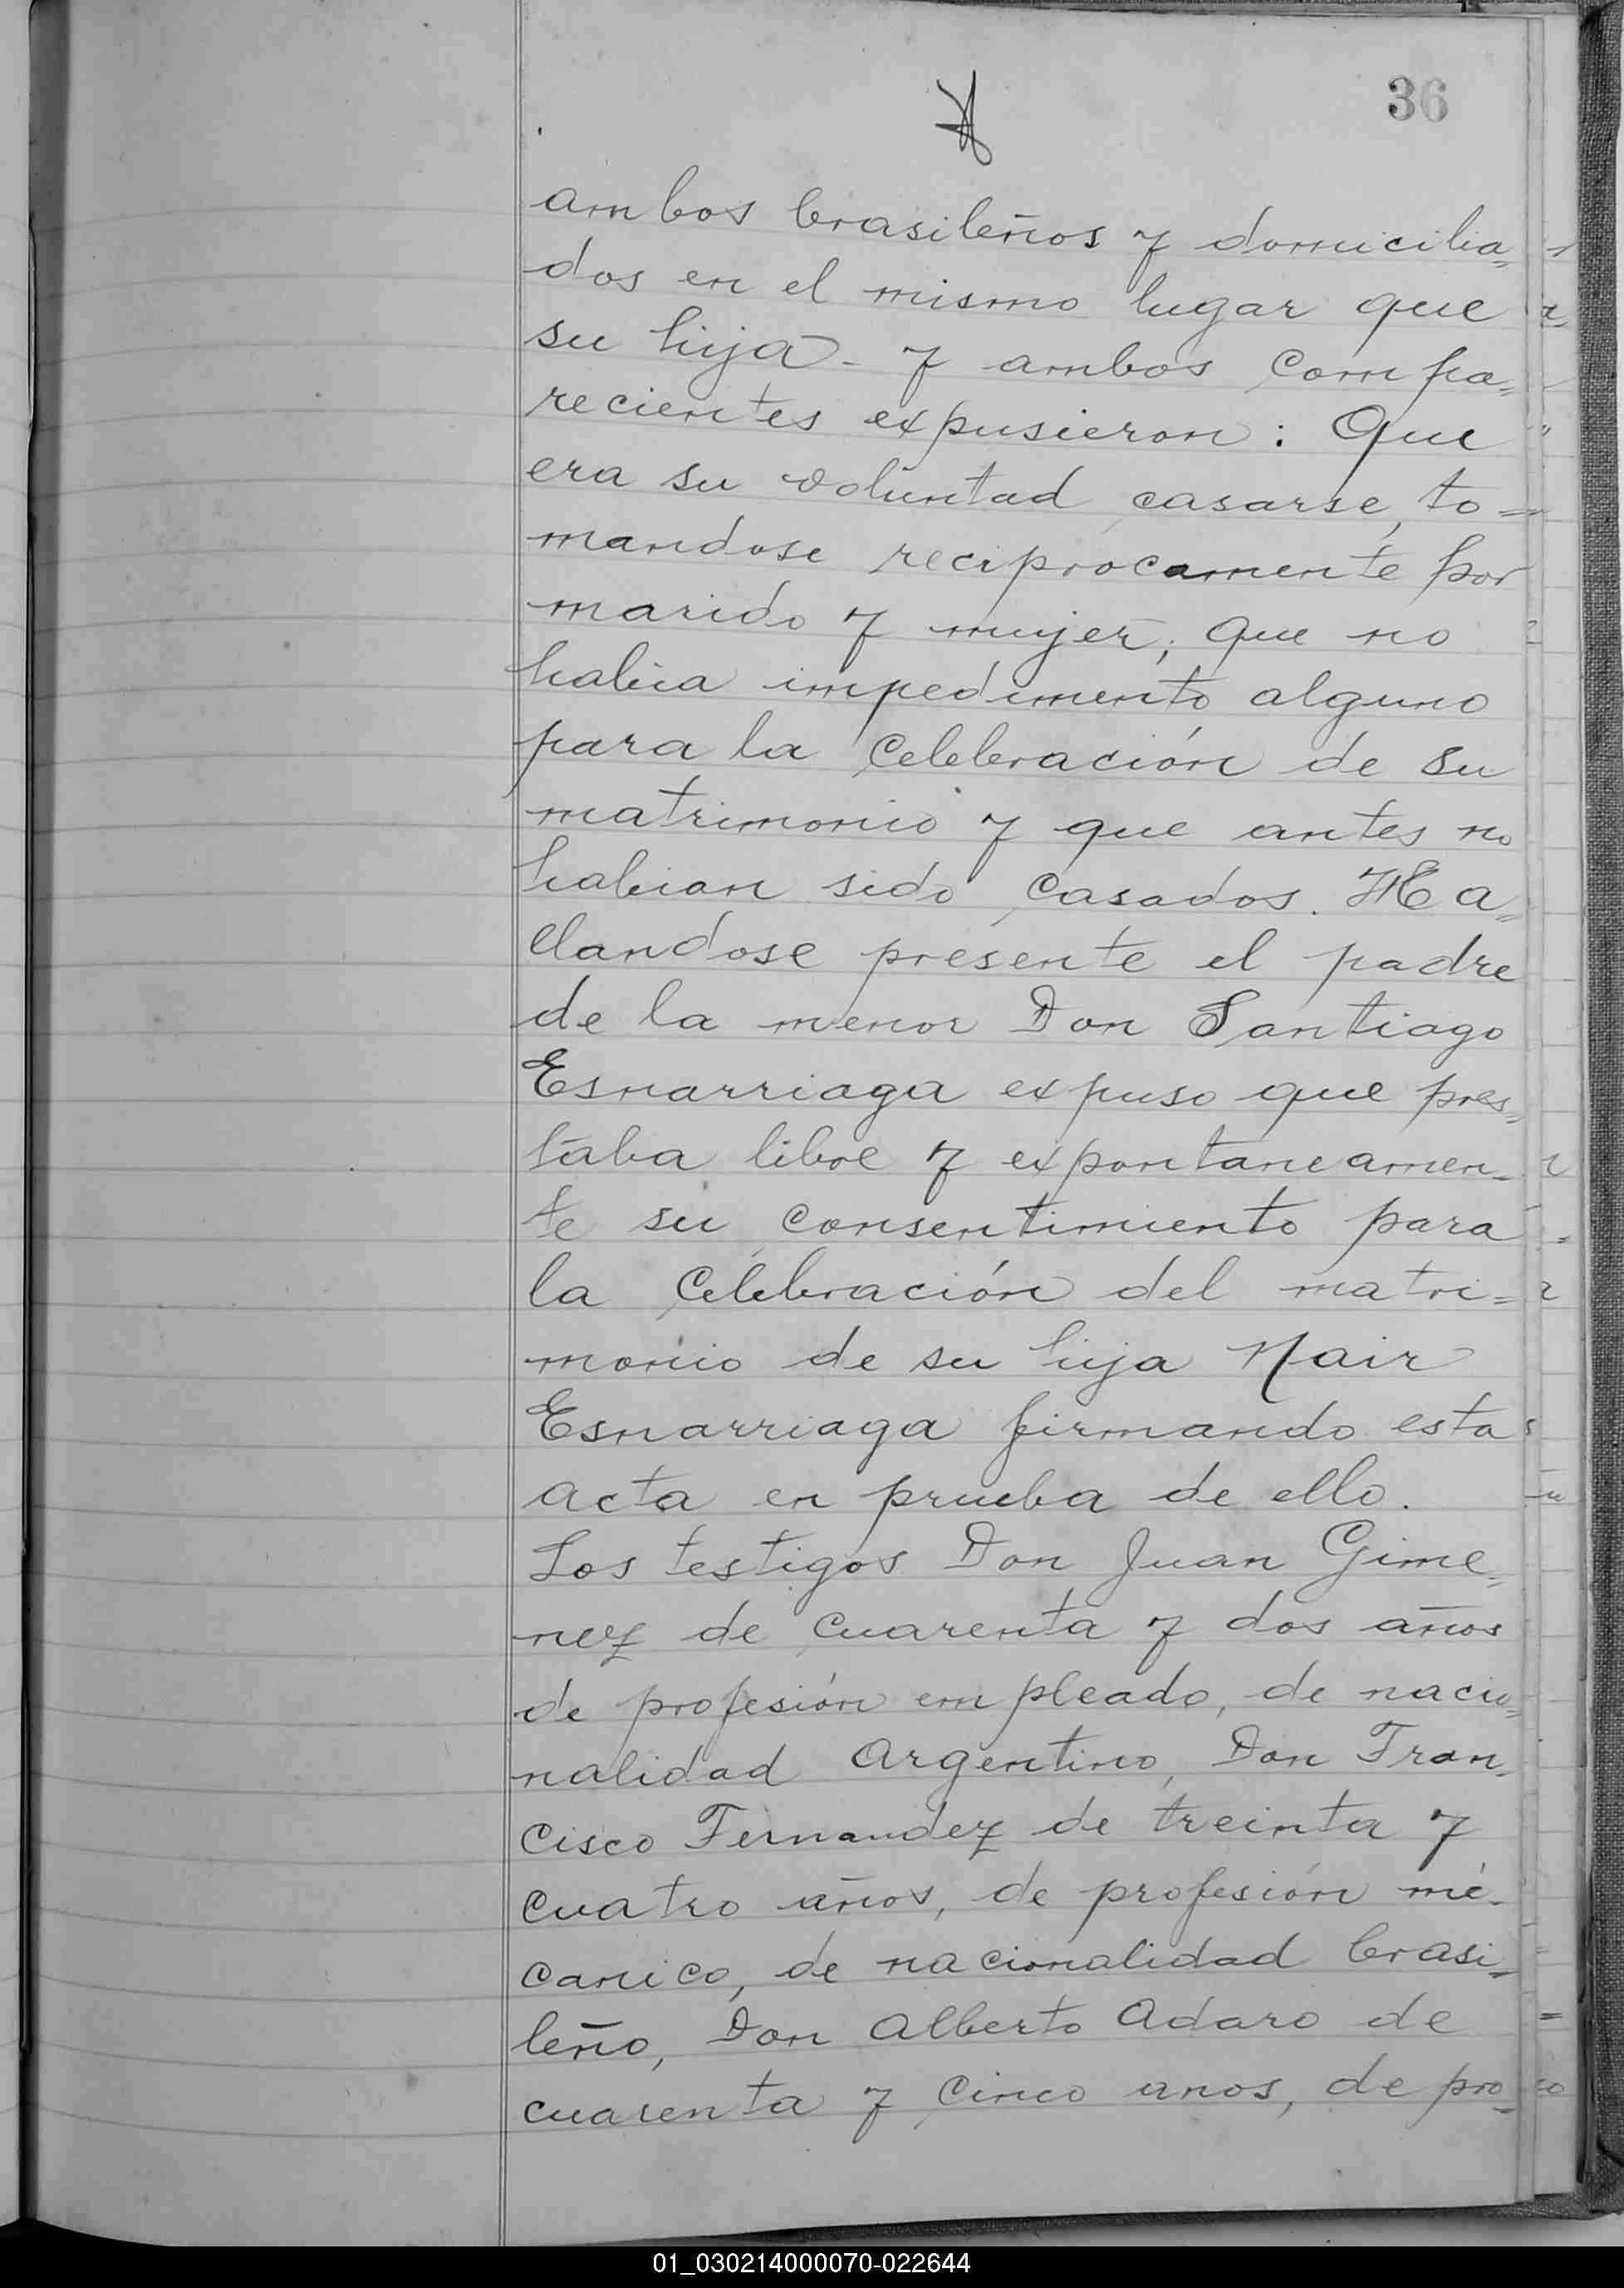 36
ambos brasileños y domicilia=
dos en el mismo lugar que
su hija - y ambos compa=
recientes expusieron: Que
era su voluntad casarse, to=
mandose reciprocamente por
marido y mujer; que no
habia impedimento alguno
para la celebración de su
matrimonio y que antes no
habian sido casados. Ha=
llandose presente el padre
de la menor Don Santiago
Esnarriaga expuso que pres=
taba libre y expontaneamen-
te su consentimiento para
la celebración del matri=
monio de su hija Nair
Esnarriaga firmando esta
acta en prueba de ello.
Los testigos Don Juan Gime=
nez de cuarenta y dos años
de profesión empleado, de nacio=
nalidad Argentino, Don Fran=
cisco Fernandez de treinta y
cuatro años, de profesión mé-
canico, de nacionalidad brasi=
leño, Don Alberto Adaro de
cuarenta y cinco anos, de pro=
01_030214000070-022644